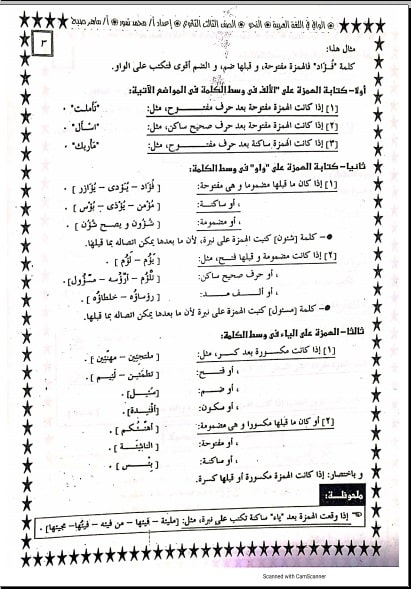 ★ الوافى فى اللغة العربية ★ النحو ★ الصف الثالث الثانوى ★ إعداد أ/ محمد نصور ★ أ/ ماهر صبيح ★
٣
مثال هذا:
كلمة "فُـؤَاد" فالهمزة مفتوحة، و قبلها ضم، و الضم أقوى فتكتب على الواو.
أولا-كتابة الهمزة على "الألف" فى وسط الكلمة فى المواضع الآتية:
[١] إذا كانت الهمزة مفتوحة بعد حرف مفتـــوح، مثل: "تَأَملت" .
[٢] إذا كانت الهمزة مفتوحة بعد حرف صحيح ساكن، مثل: "اسْأَل" .
[٣] إذا كانت الهمزة ساكنة بعد حرف مفتـــوح، مثل: "مَأربك" .
ثانيا-كتابة الهمزة على "واو" فى وسط الكلمة:
[١] إذا كان ما قبلها مضموما و هى مفتوحة: [ فُؤَاد – يُـؤَدى – يُـؤَازر ] .
، أو ساكنـــة: [ مُؤْمن – يُؤْذى – بُؤْس ] .
، أو مضمومة: [ شُؤُون و يصح شُؤُن ] .
●– كلمة [شئون] كتبت الهمزة على نبرة، لأن ما بعدها يمكن اتصاله بما قبلها.
[٢] إذا كانت مضمومة و قبلها فتح، مثل: [ يَؤُم – لَؤُم ] .
، أو حرف صحيح ساكن: [ تَلْؤُم – أَرْؤُسه – مَسْـؤُول] .
، أو ألـــف مـــد: [ رؤساؤُه – خلطاؤُه ] .
●– كلمة [مسئول] كتبت الهمزة على نبرة، لأن ما بعدها يمكن اتصاله بما قبلها.
ثالثا-الهمزة على الياء فى وسط الكلمة:
[١] إذا كانت مكسورة بعد كسر، مثل: [ ملتجئِين – مهنّئِين ] .
، أو فتح: [ تطمَئِن – لَئِيم ] .
، أو ضم: [ سُئِـل] .
، أو سكون: [ أفْئِدة] .
[٢] أو كان ما قبلها مكسورا و هى مضمومة: [ أهنِّئُـكم ] .
، أو مفتوحة: [ الناشِئَة ] .
، أو ساكنة: [ بِئْـس ] .
و باختصار: إذا كانت الهمزة مكسورة أو قبلها كسرة.
ملحوظة:
إذا وقعت الهمزة بعد "ياء" ساكنة تكتب على نبرة، مثل: [مليئة – فيئها – من فيئه – فيئُها – مجيئها] .
Scanned with CamScanner